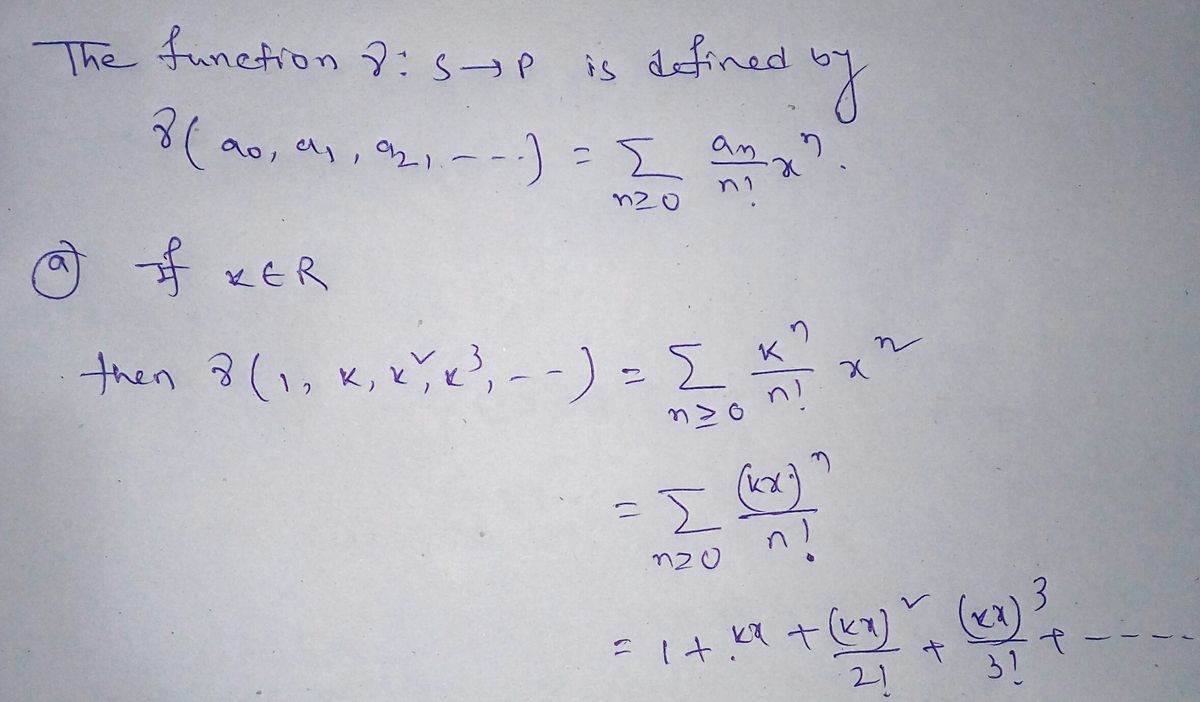 The function γ: S→P is defined by
γ(a₀, a₁, a₂, ---) = Σ_{n≥0} aₙ/n! xⁿ.
(a) If k ∈ R
then γ(1, k, k², k³, --) = Σ_{n≥0} kⁿ/n! xⁿ
= Σ_{n≥0} (kx)ⁿ/n!
= 1 + kx + (kx)²/2! + (kx)³/3! + ----